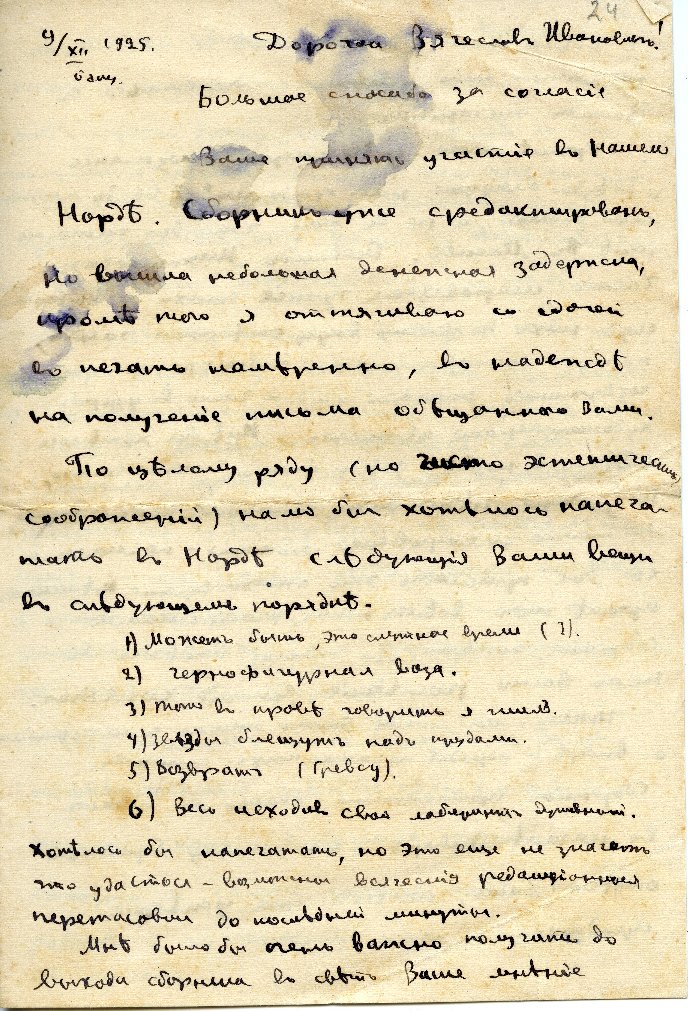 24
9/XII 1925.
Баку.
Дорогой Вячеславъ Ивановичъ!
Большое спасибо за согласіе
Ваше принять участіе въ нашемъ
Нордѣ. Сборникъ уже средактированъ,
но вышла небольшая денежная задержка,
кромѣ того я оттягиваю со сдачей
въ печать намѣренно, въ надеждѣ
на полученіе письма обѣщаннаго Вами.
По цѣлому ряду (но чисто эстетическихъ
соображеній) намъ бы хотѣлось напеча-
тать въ Нордѣ слѣдующія Ваши вещи
въ слѣдующемъ порядкѣ.
1) Можетъ быть, это смутное время (?).
2) Чернофигурная ваза.
3) Того въ кровѣ говоритъ я
4) Звезды блещутъ надъ прудами.
5) Возвратъ (Гревсу).
6) Весь исходивъ свой лабиринтъ душевный.
Хотѣлось бы напечатать, но это еще не значитъ
что удастся – возможны всяческія редакціонныя
перетасовки до послѣдней минуты.
Мнѣ было бы очень важно получить до
выхода сборника въ свѣтъ Ваше мнѣніе